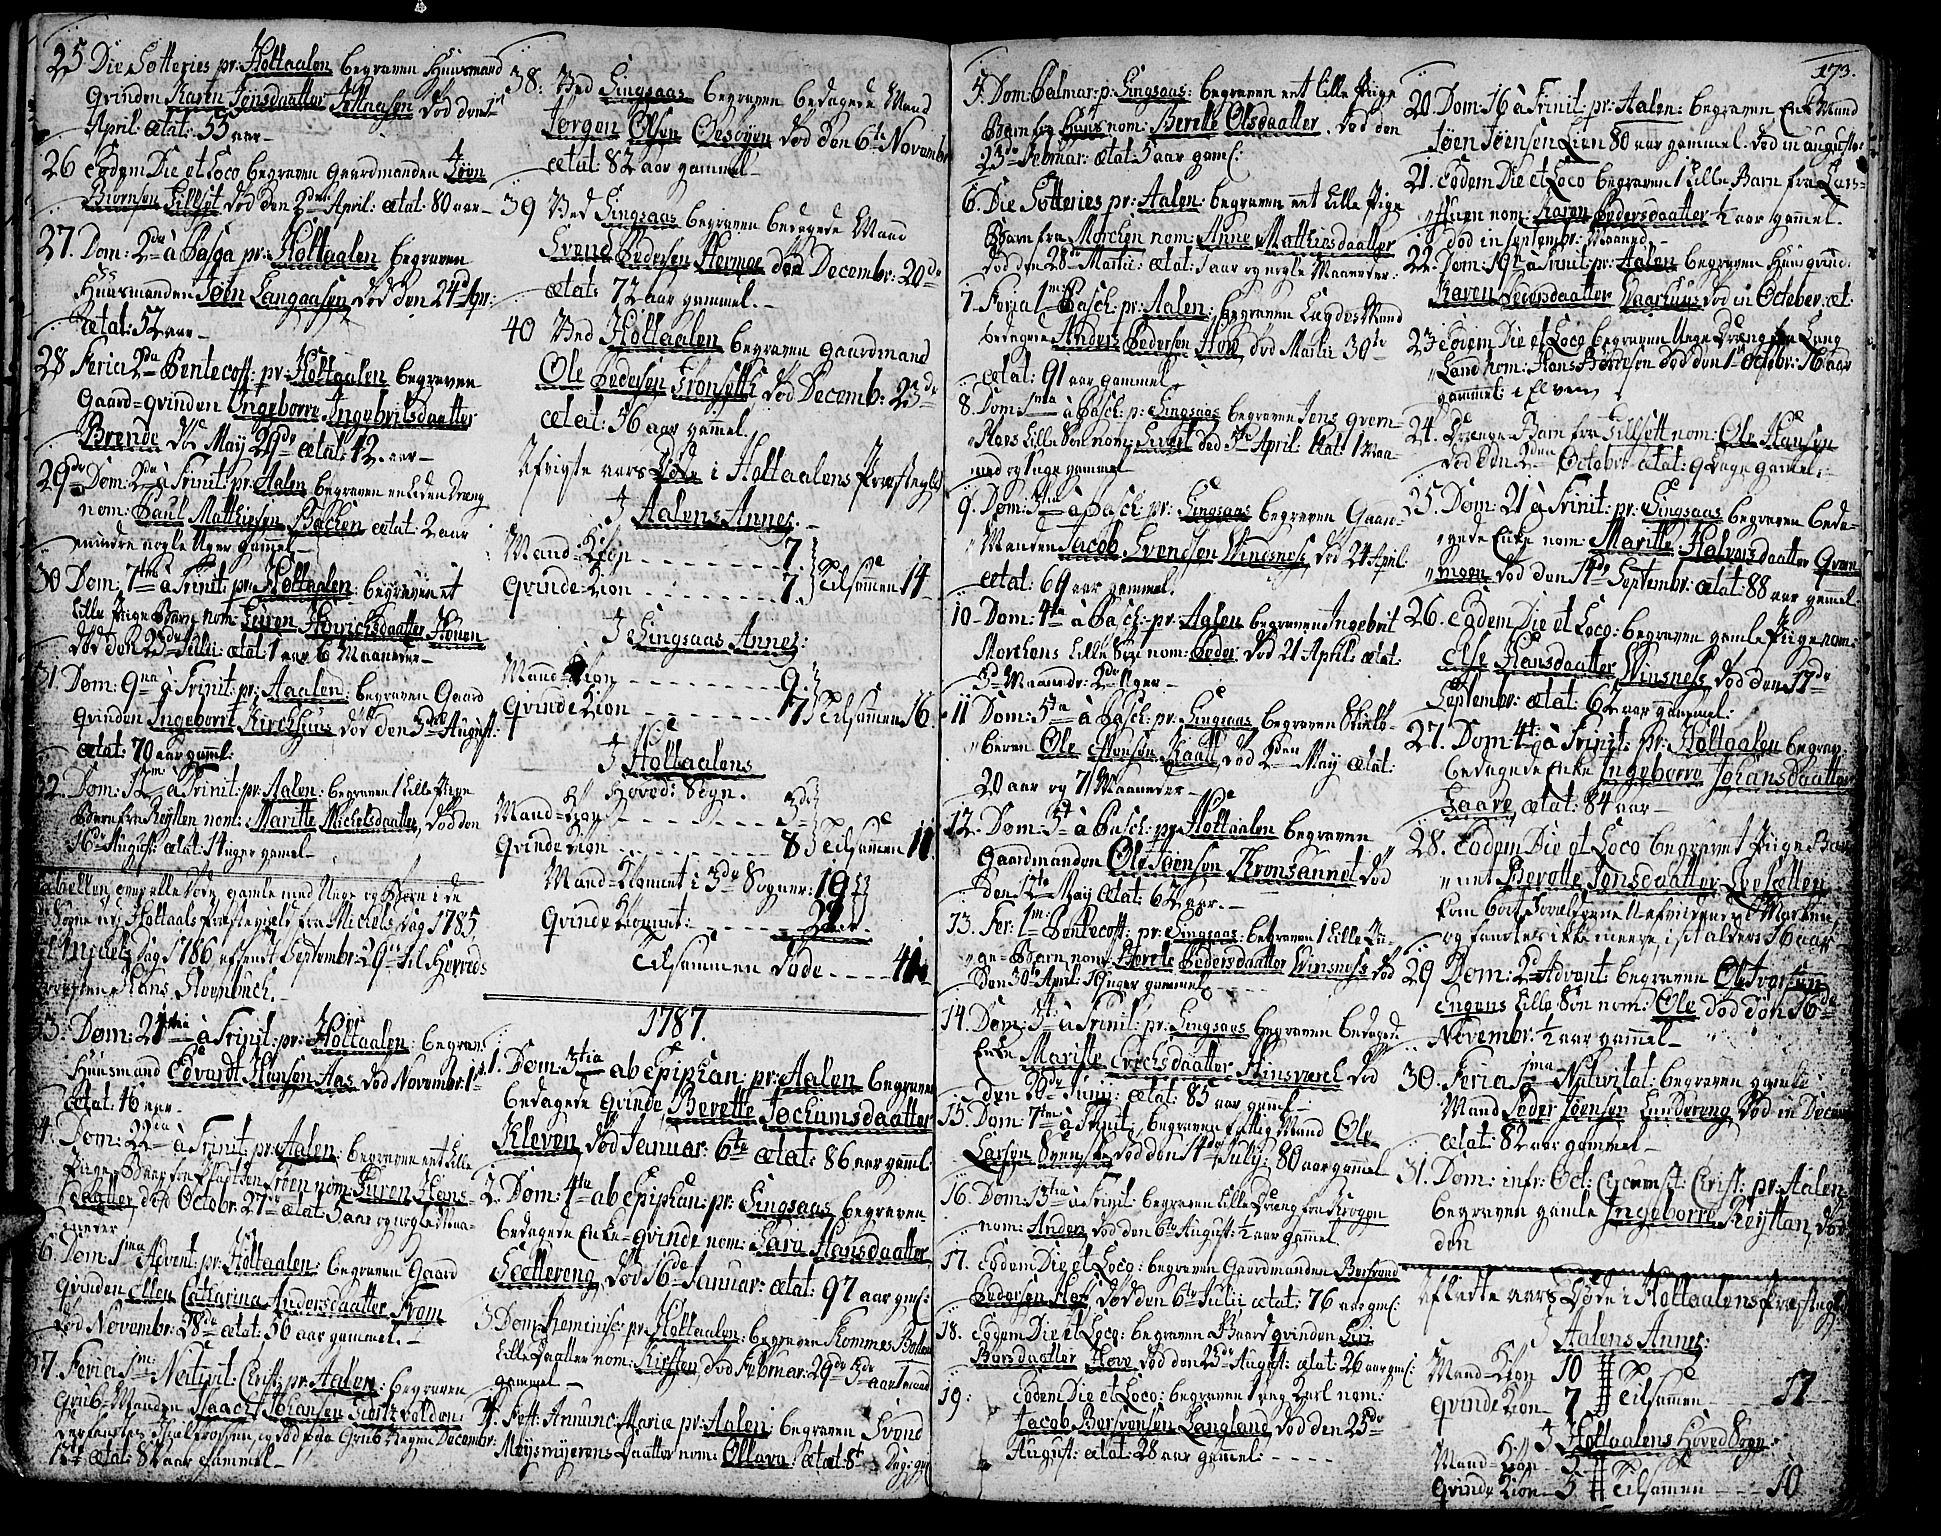 25 Die Sotteries pr: Holtaalen begraven Huusmand
qvinden Karen Jonsdaatter død den 1ste
April ætat: 55 aar
26 Eodem Die et Loco begraven Gaardmanden Jøen
Biørnsen Lillset død den 2den April: ætat: 80 aar
27. Dom: 2da à Pasca pr: Holtaalen begraven
Huusmanden Jøen Langaasen død den 24de Apr:
ætat: 52 aar
28 Feria 2da Pentecost: pr: Holtaalen begraven
Gaard=qvinden Ingeborre Ingebritsdaatter
Brende død May 29de ætat: 42 aar
29 Dom: 2da à Trinit: pr: Aalen begraven en Liden Dreng
nom: Paul Mathiesen Bachen ætat: 2 aar
mindre nogle Uger gammel
30 Dom: 7tma à Trinit: pr: Holtaalen: begraven et
Lille Pige Barn nom: Siren Henrichsdaatter
død den 23de Julii: ætat: 1 aar 6 Maaneder
31. Dom: 9na à Trinit: pr: Aalen: begraven Gaard
qvinden Ingeborre Kirchhuus død den 3die August:
ætat: 70 aar gaml:
32. Dom: 12 à Trinit: pr: Aalen: begraven 1 Lille Pige
Barn fra Reytten nom: Maritte Michelsdaatter, død den
16de August: ætat: 14 uger gamel
Tabellen over alle Døde gamle med Unge og Børn i de
Sogne udi Holtaals Præstegield fra Michels Dag 1785
til Michels Dag 1786 afsendt Septembr: 29de til Herreds
Provsten Hans Hornbuch.
33. Dom: 21 à Trinit: pr: Holtaalen: begrav:
Huusmand Edvardt Hansen Aas død Novembr: 1ste
ætat: 46 aar
Dom: 22 à Trinit: pr: Aalen: begraven ent Lille
Pige Barn fra nom: Siren Hans-
daatter død Octobr: 27de ætat: 5 aar og nogle Maa-
neder
36. Dom: 1ma Advent: pr: Holtaalen: begraven Gaard
qvinden Ellen Catharina Andersdaatter
død Novembr: 28de ætat: 56 aar gammel.
37. Feria 1ma Nativit: Christ: pr: Aalen: begraven
Grub=Manden Isaach Johansen
Decembr:
12te ætat: 82 aar gammel
38: Ved Singsaas begraven bedagede Mand
Jørgen Olsen Øesøyen død den 6te Novembr
ætat 82 aar gammel
39 Ved Singsaas begraven bedagede Mand
Svend Pedersen Hermoe død Decembr: 20de
ætat: 72 aar gammel.
40 Ved Holtaalen begraven Gaardmand
Ole Pedersen Tronseth død Decemb: 23de
ætat: 56 aar gamel.
Afvigte aars Døde i Holtaalens Præstegield
I Aalens Annex.
Mand=Kiøn 7
Qvinde=Kiøn 7 Tilsammen 14
I Singsaas Annex:
Mand=Kiøn 9
Qvinde Kiøn 7 Tilsammen 16
I Holtaalens
Hoved: Sogn.
Mand=Kiøn 3
Qvinde Kiøn 8 Tilsammen 11
Mand=Kiønnet i 3de Sogner: 19
Qvinde Kiønnet: 22
Tilsammen døde 41
1787.
1. Dom: 3tia ab Epiphan: pr: Aalen begraven
bedagede qvinde Berette Jochumsdaatter
Kleven død Januar: 6te ætat: 86 aar gaml.
2. Dom: 4ta ab Epiphan: pr: Singsaas begraven
bedagede Enke=qvinde nom: Sara Hansdaatter
Sættereng død 16de Januar: ætat: 97 aar gml:
3 Dom: Reminisc: pr: Holtaalen: begraven
Lille Daatter nom: Kirsten død Februar: 29de
gammel
4. Fest: Annunc: Mariæ pr: Aalen: begraven Svend
Meysmyrens Daatter nom: Ollava ætat: 8
173.
5. Dom: Palmar: p: Singsaas: begraven ent lille Pige
Barn fra nom: Berette Olsdaatter død den
23de Februar: ætat: 5 aar gaml:
6. Die Sotteries pr: Aalen: begraven ent Lille Pige
Barn fra Morchen nom: Anne Mathiesdaatter
død den 28de Martii: ætat: 1 aar og nogle Maaneder:
7. Feria 1ma Pasch: pr: Aalen: begraven Lægdes Mand
bedagede Anders Pedersen Hove død Martii 30te
ætat: 91 aar gammel
8. Dom: 1ma à Pasch: p: Singsaas begraven Jens
Lille Søn nom: Sivert død 5te April: ætat: 1 Maa-
ned og 1 uge gammel
9. Dom: 3tia à Pasch: pr: Singsaas begraven Gaar-
Manden Jacob Svendsen Vinsness død 24 April:
ætat: 69 aar gammel.
10 Dom: 4ta à Pasch: pr: Aalen begraven Ingebrit
Morchens Lille Søn nom: Peder død 21 April: ætat:
3de Maaneder: 2de Uger
11 Dom: 5ta à Pasch: pr: Singsaas begraven
Ole død 2den May ætat:
20 aar og 7 Maaneder
12. Dom: 5t à Pasch: pr: Holtaalen begraven
Gaardmanden Ole Jøensen død
den 12te May ætat: 62 aar.
13. Fer: 1ma Pentecost: pr: Singsaas: begraven 1 Lille Pi-
ge=Barn nom: Berete Pedersdaatter Vinsness død
den 30te April: 19 uger gammel
14. Dom: à Trinit: pr: Singsaas begraven bedagede
Enke Maritte Erichsdaatter død
den 29de Junij: ætat: 85 aar gamel
15. Dom: 7tma à Trinit: begraven Fattig Mand Ole
Larsen Svensk død den 14de Julij: 80 aar gammel
16. Dom: 13tia à Trinit: begraven Lille Dreng fra Krogen
nom: Anders død den 6te August: ½ aar gammel
17. Eodem Die et Loco: begraven Gaardmanden
Pedersen død den 6te Julii ætat: 76 aar gml:
18. Eodem Die et Loco: begraven Gaard qvinden Siri
Børsdaatter Hove død den 25de August: ætat: 26 aar gml:
19: Eodem Die et Loco: begraven Ung Karl nom:
Jacob Langland død den 25de
August: ætat: 28 aar gammel:
20 Dom: 16 à Trinit: pr: Aalen: begraven Enk Mand
Jøen Jøensen Lien 80 aar gammel: død in Augusti
21. Eodem Die et Loco begraven 1 Lille Barn fra Lars-
Huen nom: Karen Pedersdaatter ½ aar gammel.
død in Septembr: Maaned
22. Dom: 19 à Trinit: pr: Aalen begraven Huusqvind:
Karen Pedersdaatter død in October: æt:
23 Eodem Die et Loco begraven Unge Dreng fra Lang
Land nom: Hans død den 1ste Octobr: 16 aar
gammel: i Elven
24. Drenge Barn fra Lillsett nom: Ole Hansen
død den 2den Octobr: ætat: 9 Dage gamel:
25. Dom: 21 à Trinit: pr: Singsaas begraven beda-
gede Enke nom: Maritte Halvorsdaatter Grøn-
moen død den 14de Septembr: ætat: 88 aar gamel
26. Eodem Die et Loco: begraven gamle Pige nom:
Else Hansdaatter Vinsness død den 17de
Septembr: ætat: 62 aar gammel:
27. Dom: à Trinit: pr: Holtaalen begrav:
bedagede Enke Ingeborre Johansdaatter
Gaare, ætat: 84 aar
28. Eodem Die et Loco begravet Pige Bar-
net Berette Jonsdaatter
og fandtes ikke meere, i sit alders 16 aar
29 Dom: 2 Advent: begraven Ole Ivarsen
Engens Lille Søn nom: Ole død den 16de
Novembr: ½ aar gammel
30. Feria 1ma Nativitat: begraven gamle
Mand Peder Jøensen død in Decem
ætat: 82 aar gammel
31. Dom: infr: Oct: Circumcis: Christ: pr: Aalen
begraven gamle Ingeborre Reyttan, død
den
Afledte aars Døde i Holtaalens Præstegield
I Aalens Annex:
Mand=Kiøn 10
Qvinde Kiøn 7 Tilsamen 17
I Holtaalens Hoved Sogn:
Mand=Kiøn 5
Qvinde Kiøn 5 Tilsamen 10